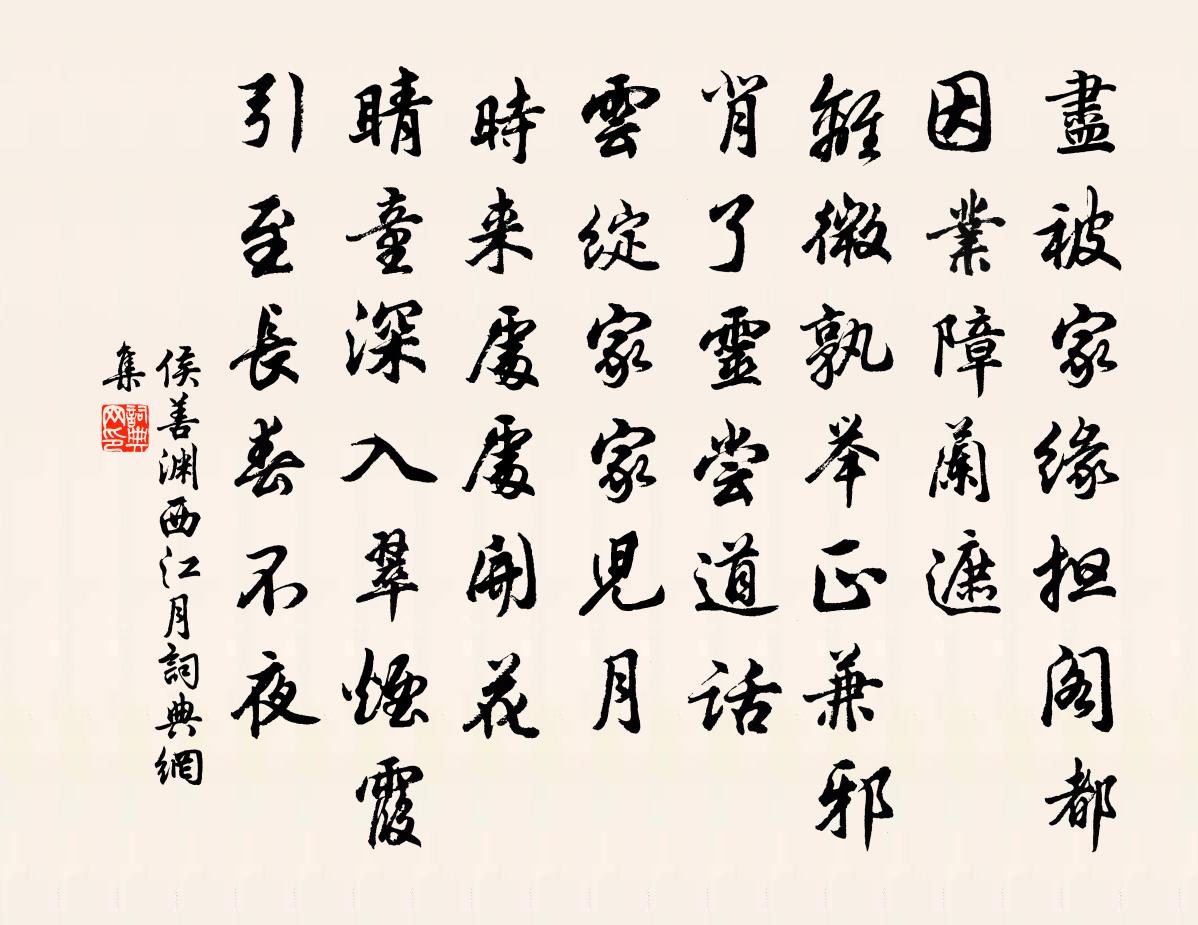 盡被家緣担阁都
因業障蘭遮
離微孰举正兼邪
肖了靈尝道话
雲綻家家児月
時来處處開花
睛童深入翠煙霞
引至長春不夜
侯善渊西江月詞典網
集
詞典网印